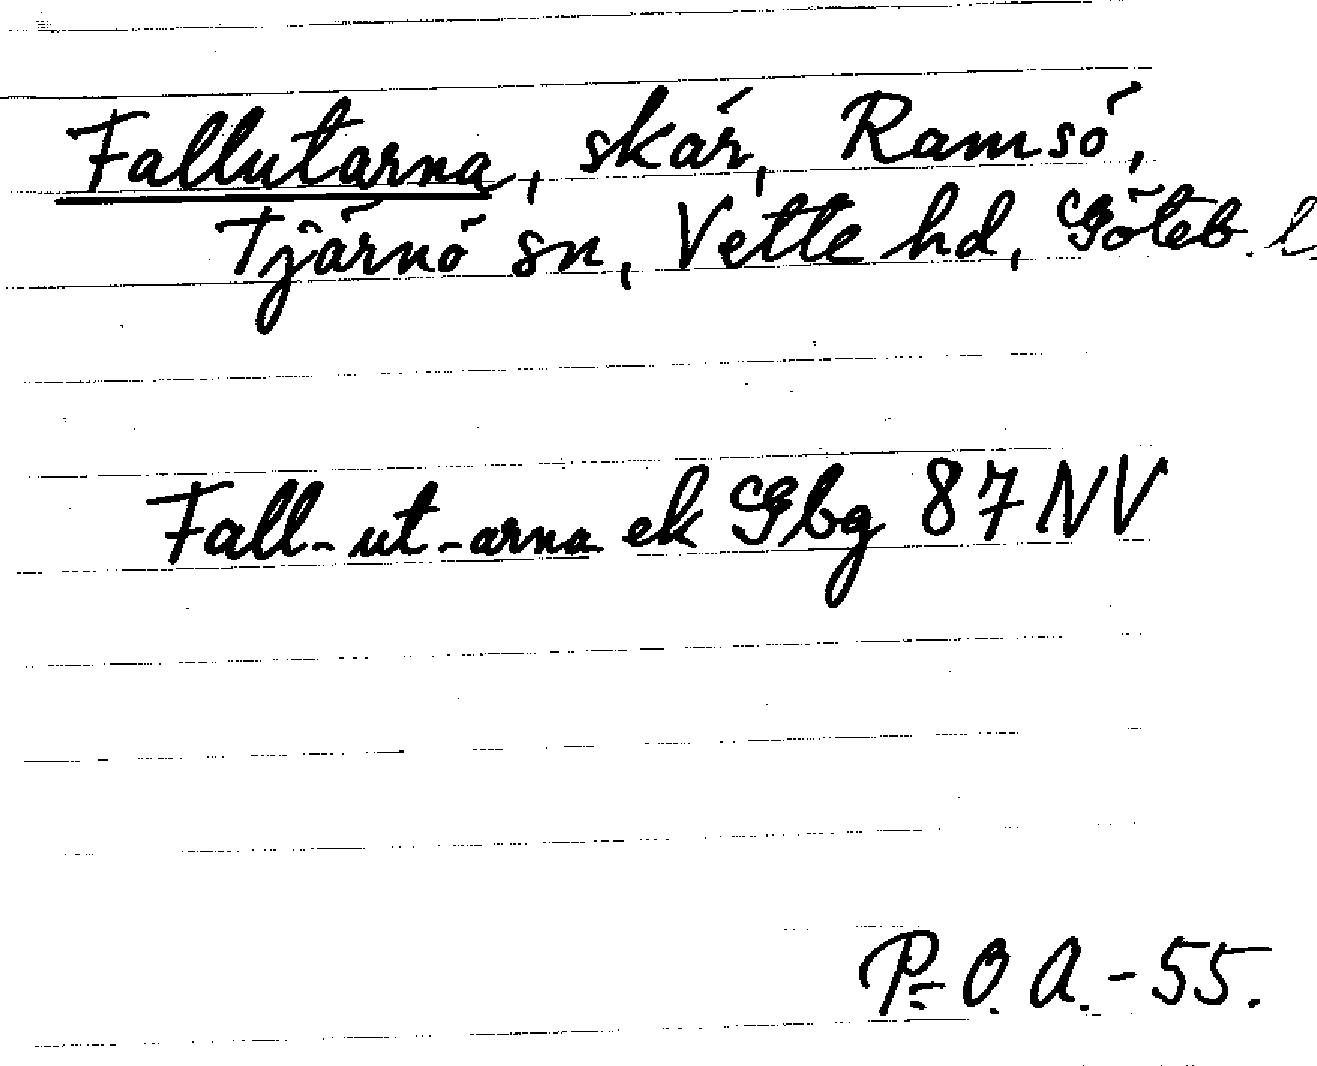 Fallutarna, skär, Ramsö,
Tjärnö sn, Vette hd, Göteb. l.
Fall-ut-arna ek Gbg 87 NV
P=O. A. -55.